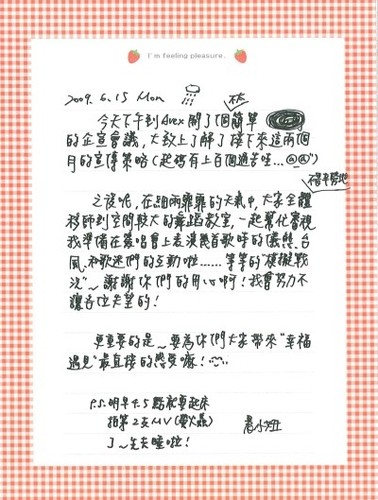 I'm feeling pleasure.
2009. 6. 15 Mon
今天下午到Avex開了個簡單
的企宣會議，大致上了解了接下來這兩個
月的宣傳策略(起碼有上百個通告哇...
之後呢，在細雨霏霏的天氣中，大家全體
移師到空間較大的舞蹈教室，一起幫忙審視
我準備在簽唱會上表演幾首歌時的儀態、台
風、和歌迷們的互動啦......等等的"模擬戰
況"~謝謝你們的用心啊!我會努力不
讓各位失望的!
更重要的是~要為你們大家帶來"幸福
遇見"最直接的感受嘛!
P.S.明早4.5點就要起床
拍第2支MV(愛火蟲)
了~先去睡啦!